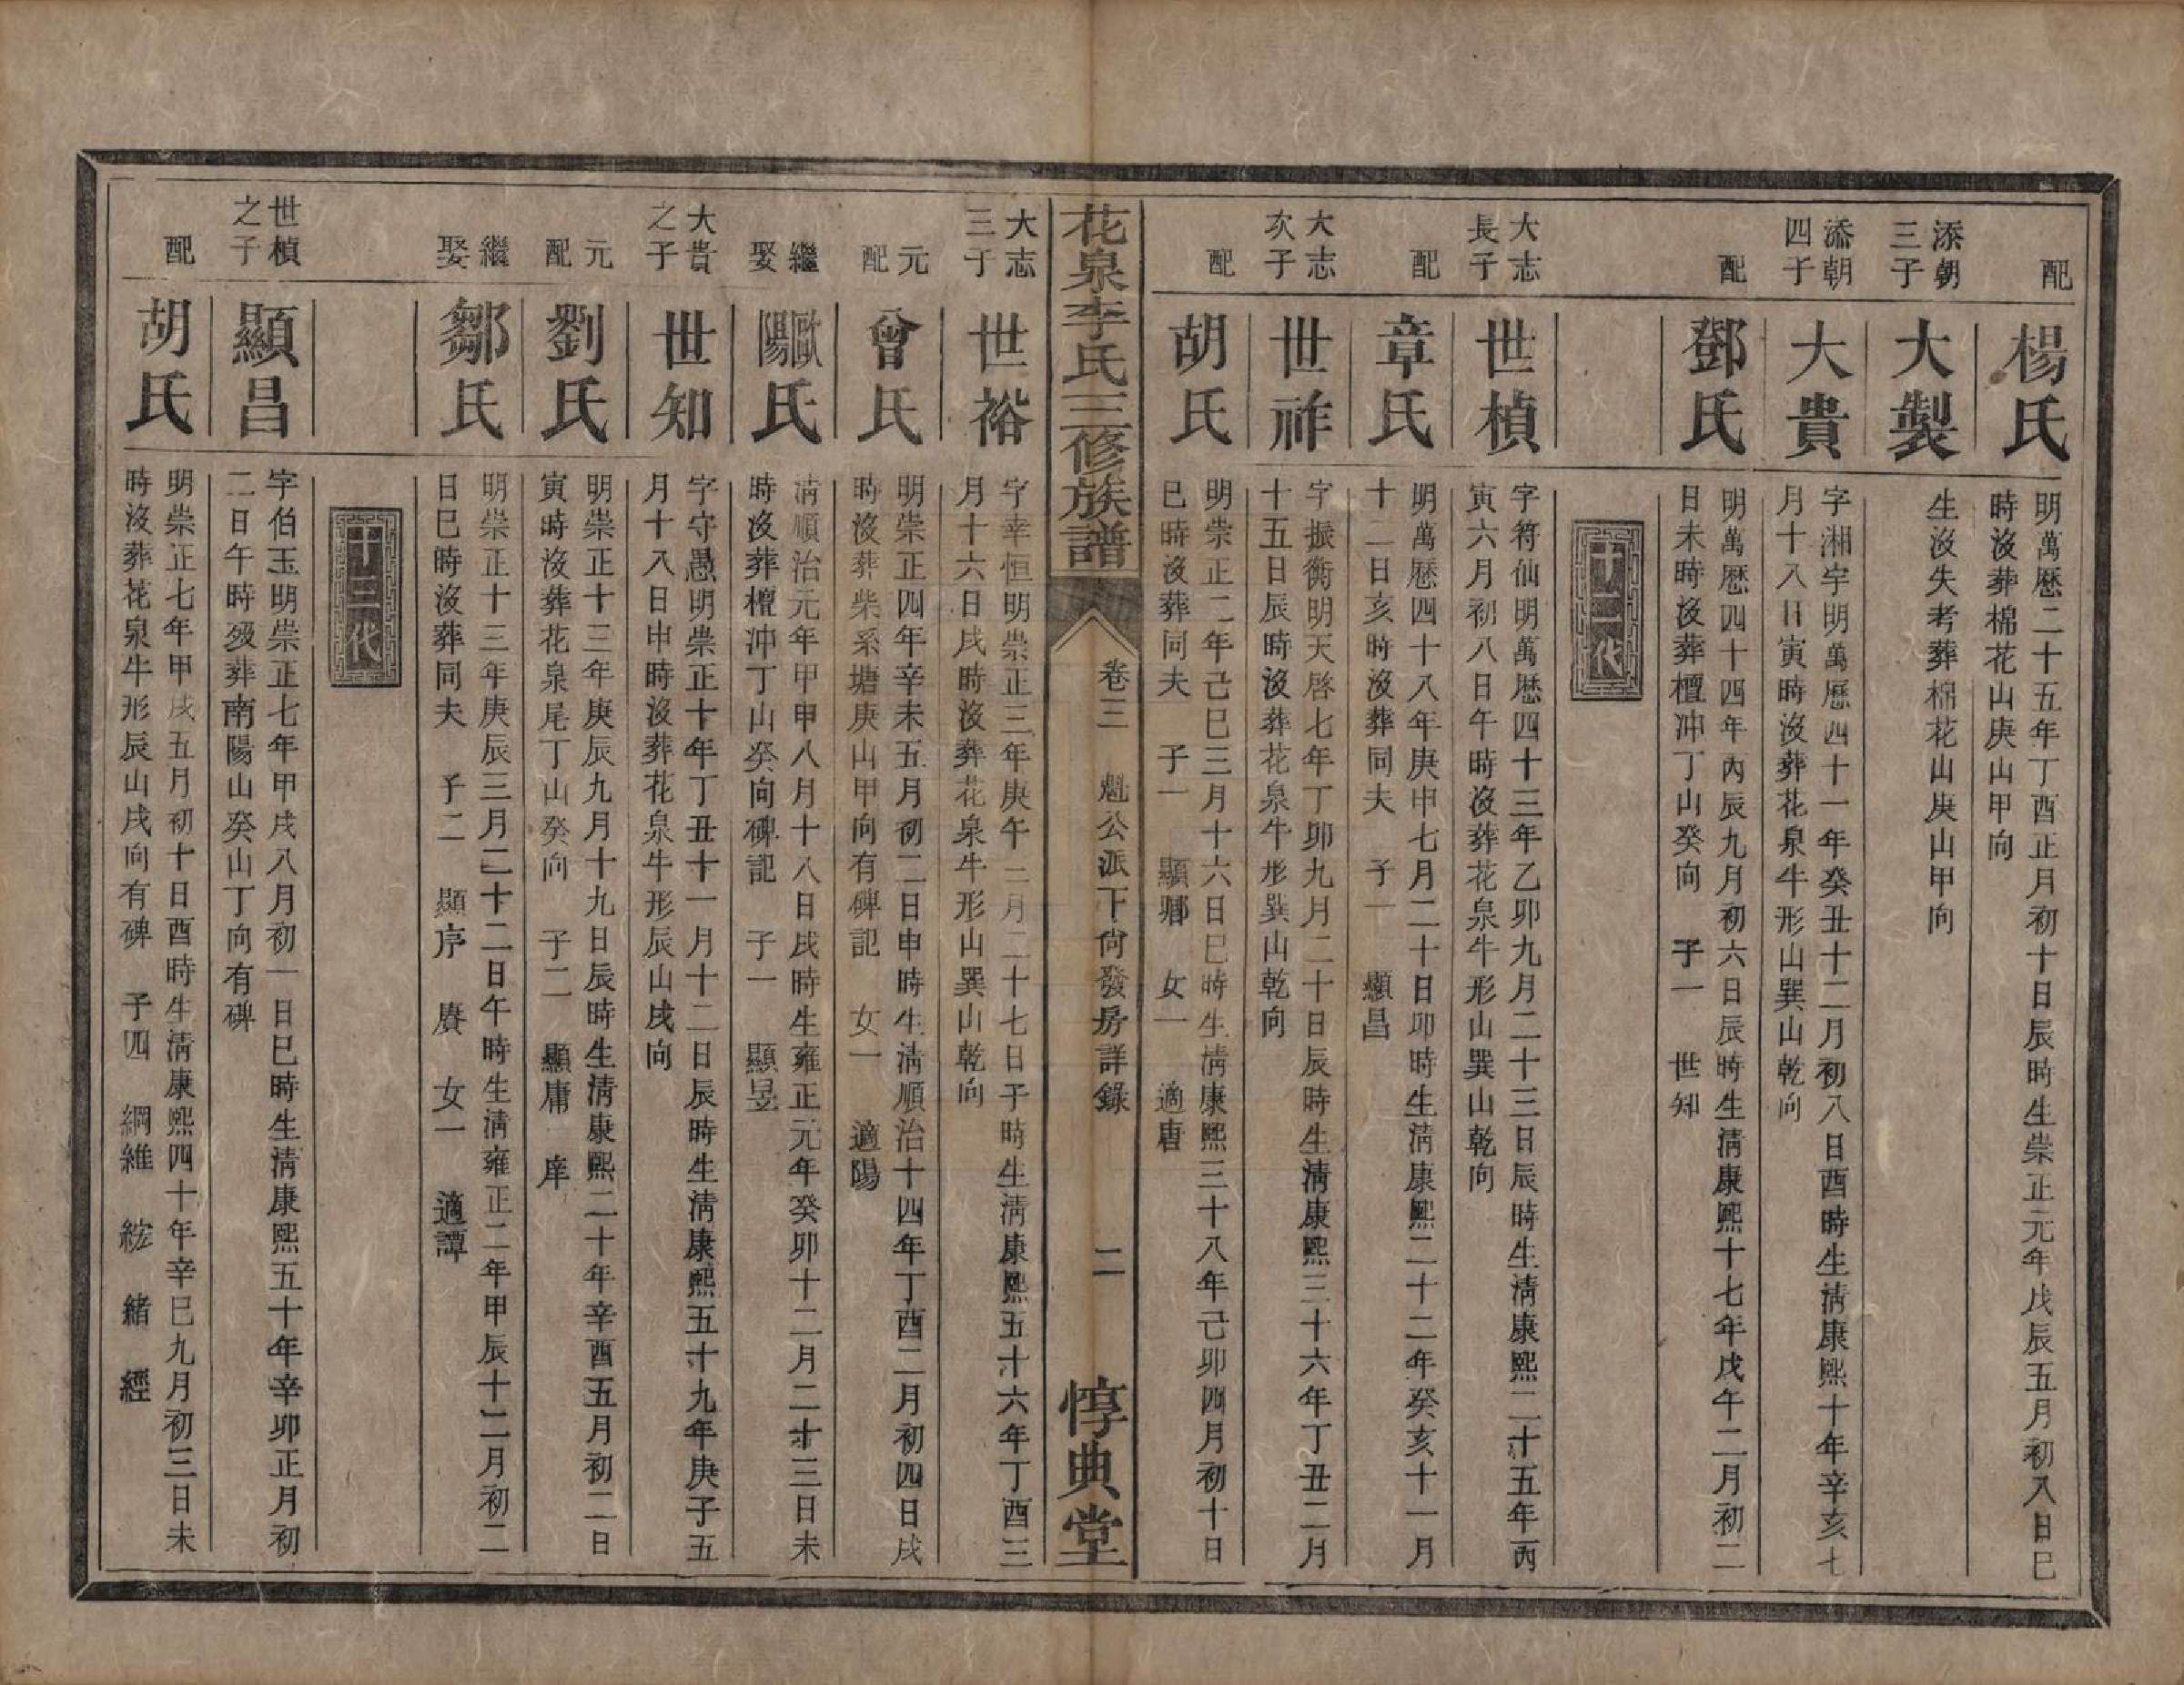 配
楊氏
明萬曆二十五年丁酉正月初十日辰時生崇正元年戊辰五月初八日巳
時沒葬棉花山庚山甲向
添朝
三子
大製
生沒失考葬棉花山庚山甲向
添朝
四子
大貴
字湘宇明萬曆四十一年癸丑十二月初八日酉時生淸康熙十年辛亥七
月十八日寅時沒葬花泉牛形山巽山乾向
配
鄧氏
明萬曆四十四年丙辰九月初六日辰時生淸康熙十七年戊午二月初二
日未時沒葬檀冲丁山癸向 子一 世知
十二代
大志
長子
世楨
字符仙明萬曆四十三年乙卯九月二十三日辰時生淸康熙二十五年丙
寅六月初八日午時沒葬花泉牛形山巽山乾向
配
章氏
明萬曆四十八年庚申七月二十日卯時生淸康熙二十二年癸亥十一月
十二日亥時沒葬同夫 子一 顯昌
大志
次子
世祚
字振衡明天啓七年丁卯九月二十日辰時生淸康熙三十六年丁丑二月
十五日辰時沒葬花泉牛形巽山乾向
配
胡氏
明崇正二年己巳三月十六日巳時生淸康熙三十八年己卯四月初十日
巳時沒葬同夫 子一 顯郷 女一 適唐
花泉李氏三修族譜
卷三 魁公派下尙發房詳錄 二
惇典堂
大志
三子
世裕
字幸恒明崇正三年庚午二月二十七日子時生淸康熙五十六年丁酉三
月十六日戌時沒葬花泉牛形山巽山乾向
元
配
曾氏
明崇正四年辛未五月初二日申時生淸順治十四年丁酉二月初四日戌
時沒葬柴系塘庚山甲向有碑記 女一 適陽
繼
娶
歐陽氏
淸順治元年甲申八月十八日戌時生雍正元年癸卯十二月二十三日未
時沒葬檀冲丁山癸向碑記 子一 顯昱
大貴
之子
世知
字守愚明崇正十年丁丑十一月十二日辰時生淸康熙五十九年庚子五
月十八日申時沒葬花泉牛形辰山戌向
元
配
劉氏
明崇正十三年庚辰九月十九日辰時生淸康熙二十年辛酉五月初二日
寅時沒葬花泉尾丁山癸向 子二 顯庸 庠
繼
娶
鄒氏
明崇正十三年庚辰三月二十二日午時生淸雍正二年甲辰十二月初二
日巳時沒葬同夫 子二 顯序 賡 女一 適譚
十三代
世楨
之子
顯昌
字伯玉明崇正七年甲戌八月初一日巳時生淸康熙五十年辛卯正月初
二日午時歿葬南陽山癸山丁向有碑
配
胡氏
明崇正七年甲戌五月初十日酉時生淸康熙四十年辛巳九月初三日未
時沒葬花泉牛形辰山戌向有碑 子四 綱維 紘 緒 經